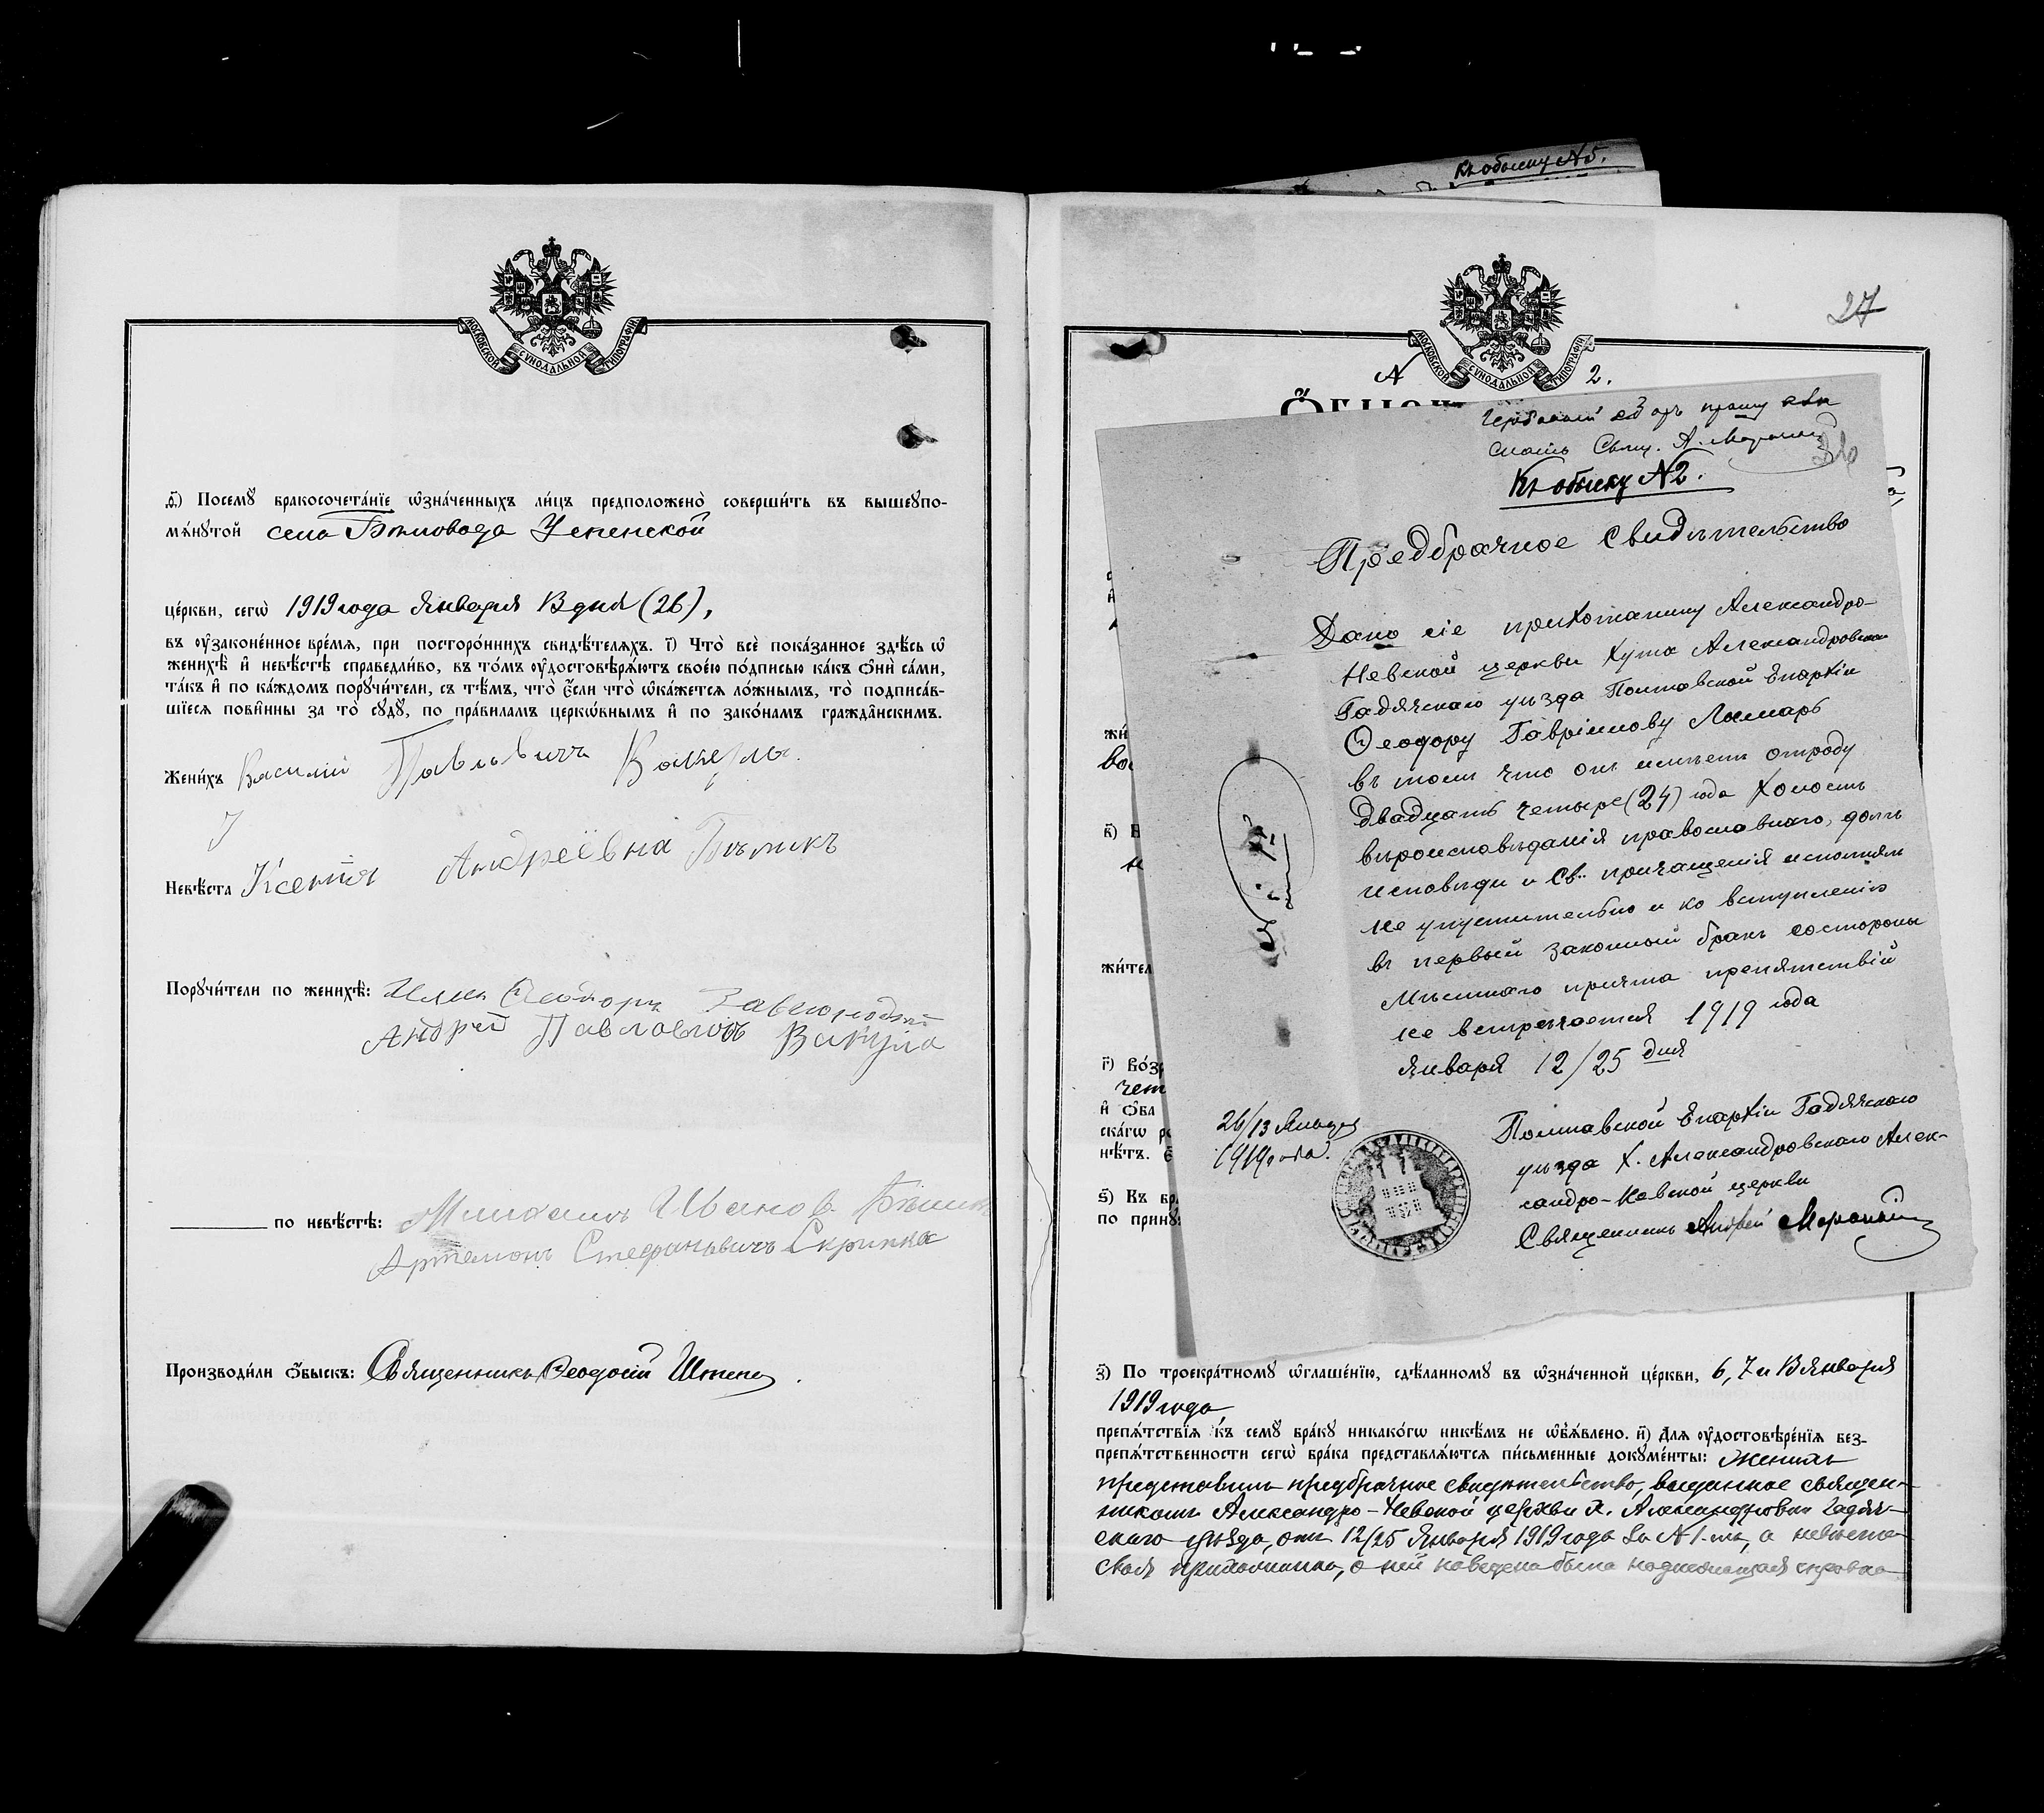 Къ обыску №5.
МОСКОВСКОЙ СѴНОДАЛЬНОЙ ТИПОГРАФІИ
д҃) Посемꙋ бракосочета́нїе ѡ҆зна́ченныхъ ли́цъ предположено̀ соверши́ть въ вышеꙋпо-
мѧ́нꙋтой села Бѣловода Успенской
це́ркви, сегѡ̀ 1919 года Января 13 дня (26),
въ ᲂу҆законе́нное вре́мѧ, при посторо́ннихъ свидѣ́телѧхъ. і҃) Что̀ всѐ пока́занное здѣ́сь ѡ҆
женихѣ̀ и҆ невѣ́стѣ справедли́во, въ то́мъ ᲂу҆достовѣрѧ́ютъ свое́ю по́дписью ка́къ ѻ҆нѝ са́ми,
та́къ и҆ по ка́ждомъ порꙋчи́тели, съ тѣ́мъ, что̀ є҆́сли что̀ ѡ҆ка́жетсѧ ло́жнымъ, то̀ подписа́в-
шїесѧ пови́нны за то̀ сꙋдꙋ̀, по пра́виламъ церко́внымъ и҆ по зако́намъ гражда́нскимъ.
Жени́хъ Василій Павловичъ
Невѣ́ста Ксенія Андреївна
Порꙋчи́тели по женихѣ̀:
Андрей Павловичъ Вакула
по невѣ́стѣ: Михаилъ Иванов
Артемонъ Стефановичъ Скрипка
Производи́ли ѻ҆́быскъ: Священникъ Ѳеодосій
27
МОСКОВСКОЙ СѴНОДАЛЬНОЙ ТИПОГРАФІИ
№ 2.
Къ обыску №2.
Предбрачное Свидѣтельство
Дано сіе прихожанину Александро-
Невской церкви Хут. Александровскаго
Гадячскаго уѣзда Полтавской Епархіи
Ѳеодору Гавріилову Ломарь
въ томъ что онъ имѣетъ отроду
двадцать четыре (24) года холостъ
вѣроисповѣданія православнаго, долгъ
исповѣди и Св. причащенія исполнялъ
не упустительно и ко вступленію
въ первый законный бракъ состороны
мѣстнаго причта препятствій
не встречается 1919 года
Января 12/25 дня
26/13 Января
1919 года.
Полтавской Епархіи Гадячскаго
уѣзда Х. Александровскаго Алек-
сандро-Невской церкви
Священникъ Андрей
з҃) По троекра́тномꙋ ѡ҆глаше́нїю, сдѣ́ланномꙋ въ ѡ҆зна́ченной це́ркви, 6, 7 и 13 Января
1919 года,
препѧ́тствїѧ къ семꙋ̀ бра́кꙋ никако́гѡ никѣ́мъ не ѡ҆б̾ѧ́влено. и҃) Длѧ ᲂу҆достовѣре́нїѧ без-
препѧ́тственности сегѡ̀ бра́ка представлѧ́ютсѧ пи́сьменные докꙋме́нты: Женихъ
представилъ предбрачное свидѣтельство, выданное священ-
никомъ Александро-Невской церкви х. Александровки Гадяч-
скаго уѣзда, отъ 12/25 Января 1919 года за №1-мъ, а невѣста
своя прихожанка, о ней наведена была надлежащая справка